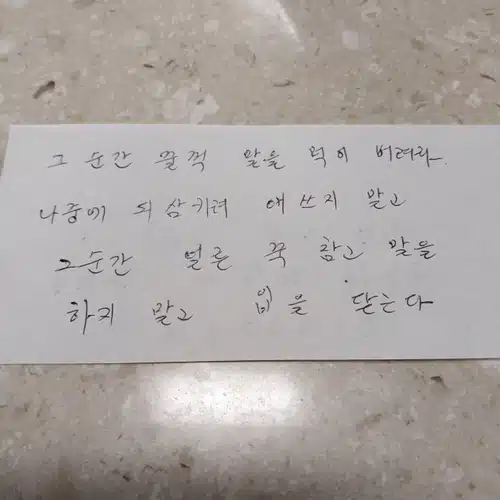 그 순간 꿀꺽 말을 먹이 버려라
나중에 되삼키려 애쓰지 말고
그순간 얼른 꾹 참고 말을
하지 말고 입을 닫는다